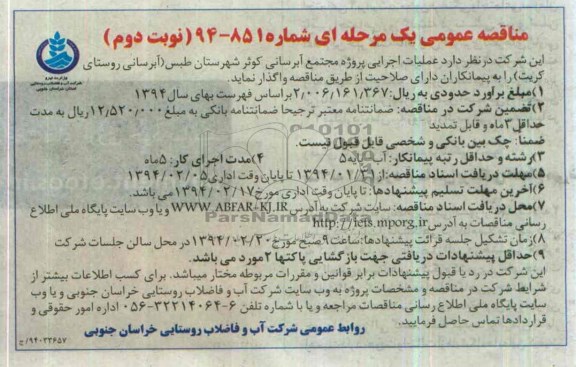 مناقصه عمومی یک مرحله ای شماره ۸۵۱-۹۴ (نوبت دوم)
این شرکت در نظر دارد عملیات اجرایی پروژه مجتمع آبرسانی کوثر شهرستان طبس(آبرسانی روستای
کریت) را به پیمانکاران دارای صلاحیت از طریق مناقصه واگذار نماید.
۱)مبلغ برآورد حدودی به ریال: ۲/۰۰۶/۱۶۱/۳۶۷ بر اساس فهرست بهای سال ۱۳۹۴
۲)تضمین شرکت در مناقصه: ضمانتنامه معتبر ترجیحا ضمانتنامه بانکی به مبلغ ۱۲/۵۲۰/۰۰۰ ریال به مدت
حداقل ۳ ماه و قابل تمدید
ضمنا: چک بین بانکی و شخصی قابل قبول نیست.
۳)رشته و حداقل رتبه پیمانکار: آب پایه ۵ ۴)مدت اجرای کار: ۵ ماه
۵)مهلت دریافت اسناد مناقصه: از ۱۳۹۴/۰۱/۳۱ تا پایان وقت اداری ۱۳۹۴/۰۲/۰۵
۶)آخرین مهلت تسلیم پیشنهادها: تا پایان وقت اداری مورخ ۱۳۹۴/۰۲/۱۷ می باشد.
۷)محل دریافت اسناد مناقصه: سایت شرکت به آدرس WWW.ABFAR-KJ.IR و یا وب سایت پایگاه ملی اطلاع
رسانی مناقصات به آدرس http://iets.mporg.ir
۸)زمان تشکیل جلسه قرائت پیشنهادها: ساعت ۹ صبح مورخ ۱۳۹۴/۰۲/۲۰ در محل سالن جلسات شرکت
۹)حداقل پیشنهادات دریافتی جهت بازگشایی پاکتها ۲ مورد می باشد.
این شرکت در رد یا قبول پیشنهادات برابر قوانین و مقررات مربوطه مختار میباشد. برای کسب اطلاعات بیشتر از
شرایط شرکت در مناقصه و مشخصات پروژه به وب سایت شرکت آب و فاضلاب روستایی خراسان جنوبی و یا وب
سایت پایگاه ملی اطلاع رسانی مناقصات مراجعه و یا با شماره تلفن ۶-۳۲۲۱۴۰۶۴-۰۵۶ اداره امور حقوقی و
قراردادها تماس حاصل فرمایید.
روابط عمومی شرکت آب و فاضلاب روستایی خراسان جنوبی
۹۴۰۲۲۶۵۷/ج